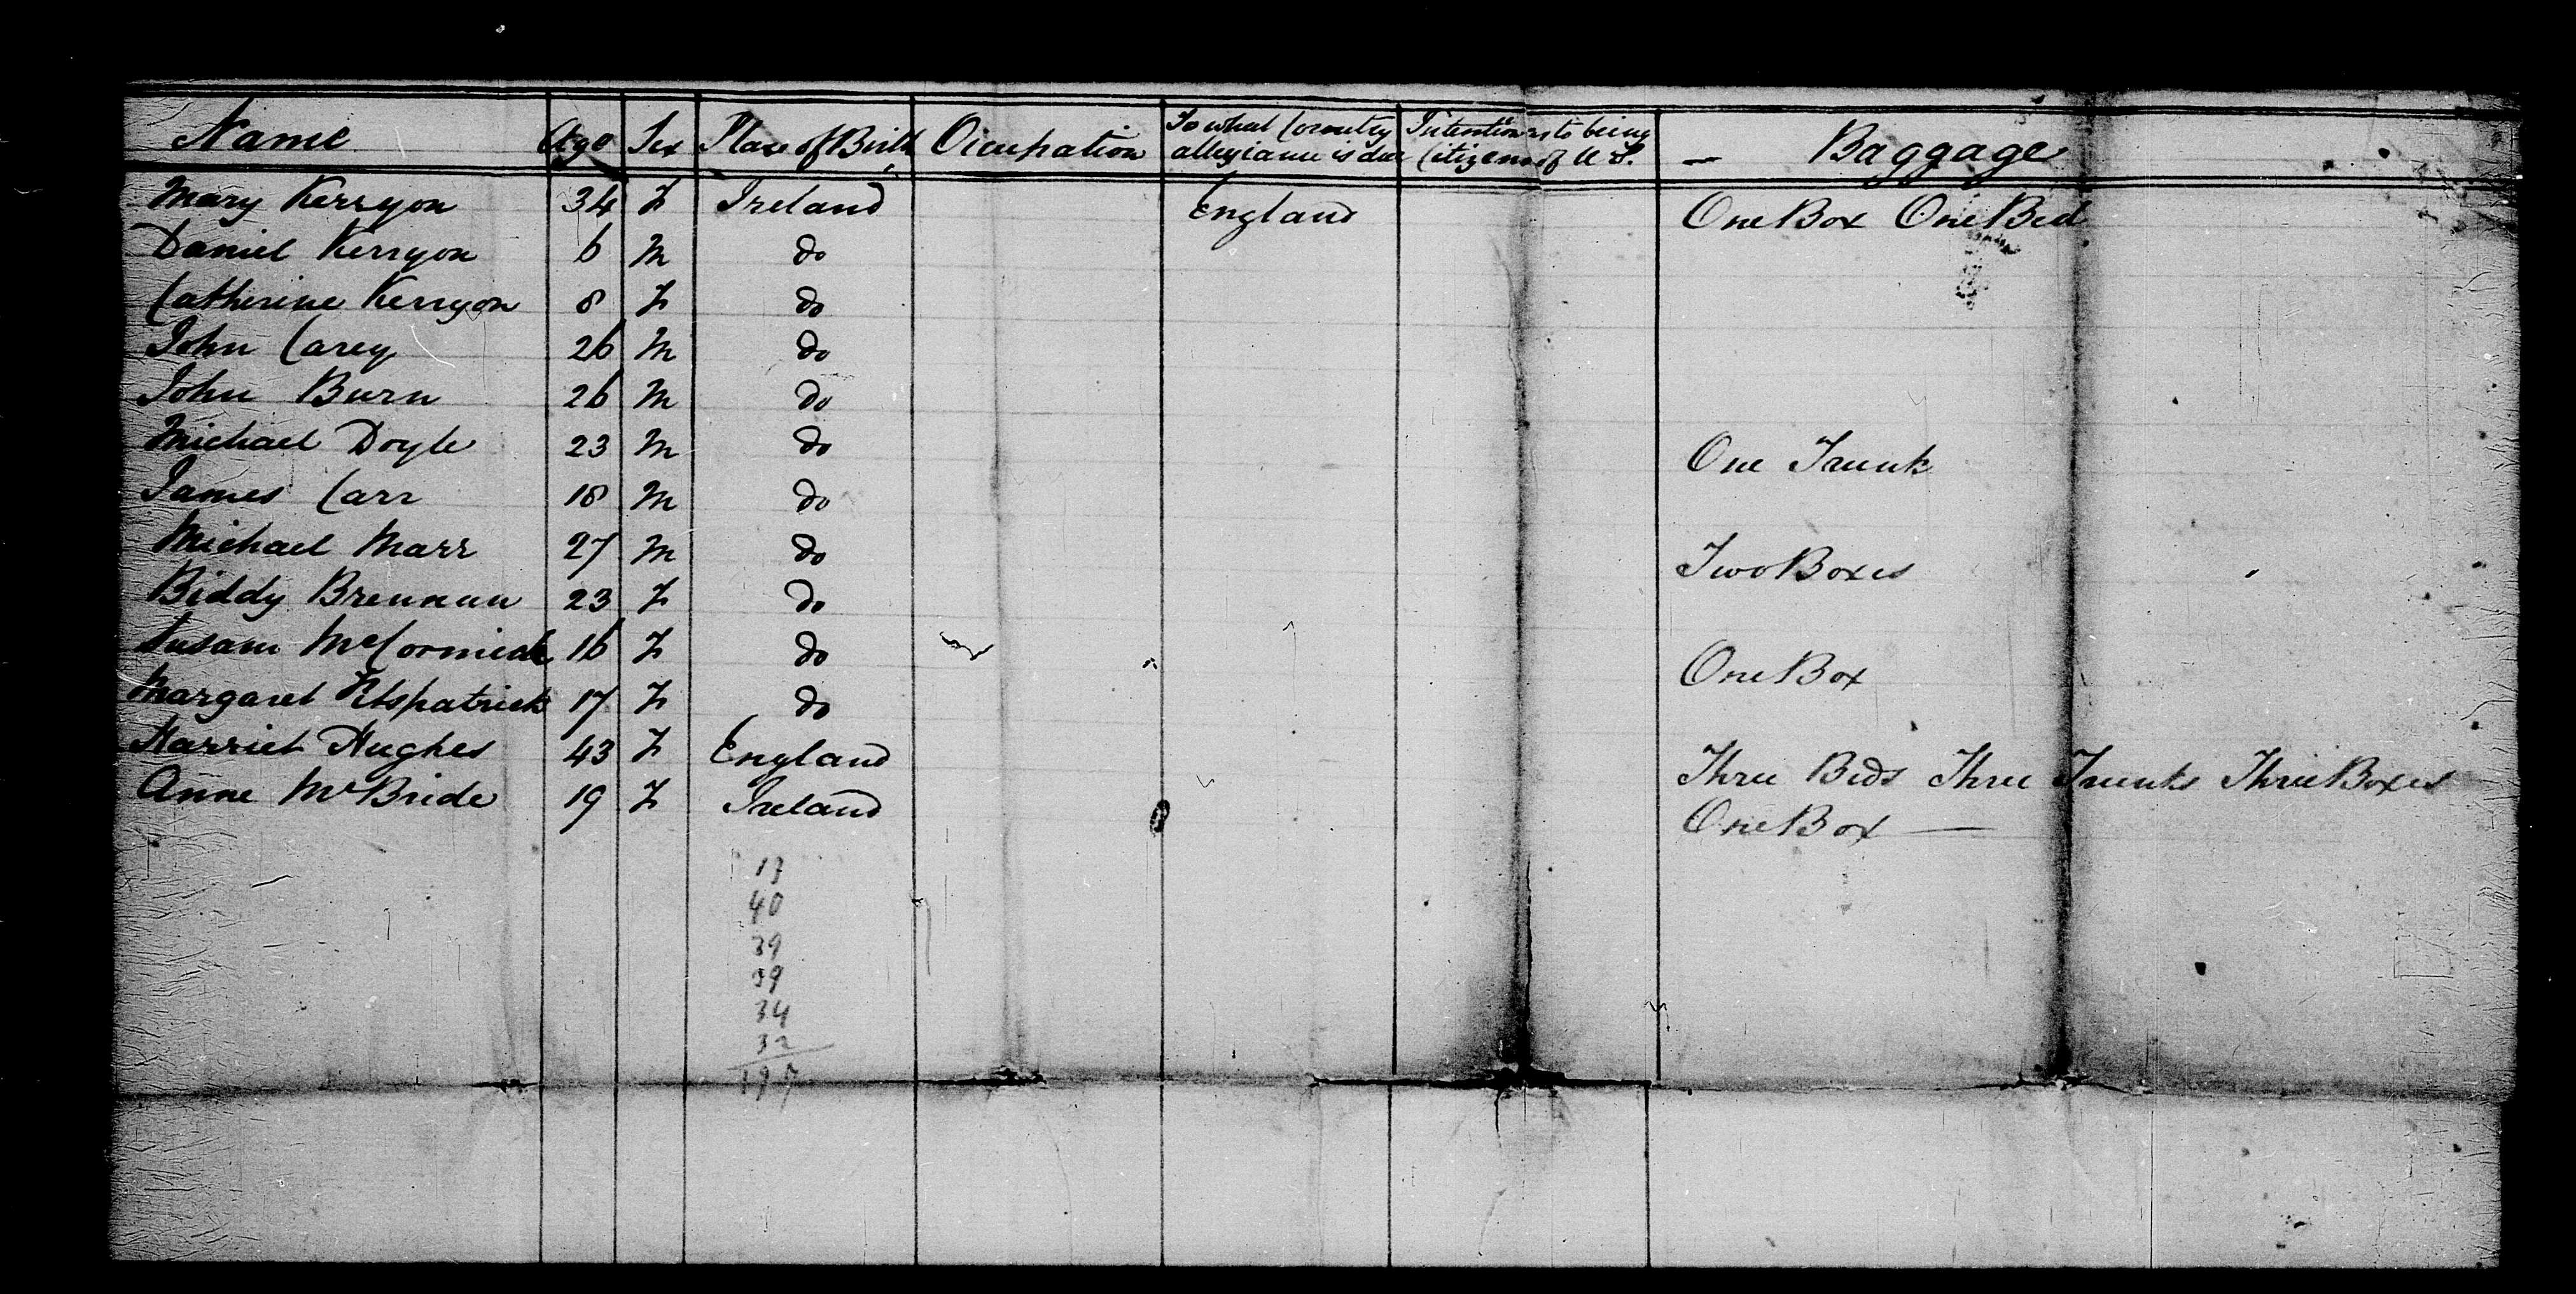 Name Age Sex Place of Birth Occupation To what Country allegiance is due Intentions to being Citizens of U S. – Baggage
Mary Kerryon 34 F Ireland England One Box One Bed
Daniel Kerryon 6 M do
Catherine Kerryon 8 F do
John Carey 26 M do
John Burn 26 M do
Michael Doyle 23 M do One Trunk
James Carr 18 M do
Michael Marr 27 M do Two Boxes
Biddy Brennan 23 F do
Susan McCormick 16 F do One Box
Margaret Fitspatrick 17 F do
Harriet Hughes 43 F England Three Beds Three Trunks Three Boxes
Anne McBride 19 F Ireland One Box —
13
40
39
39
34
32
197